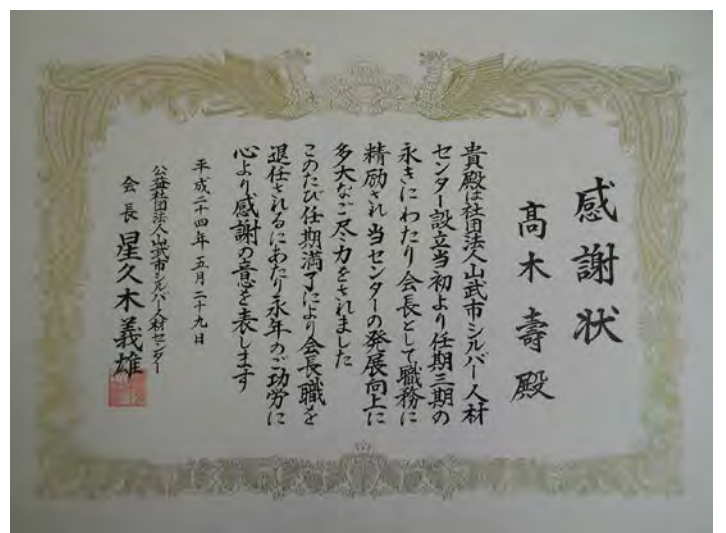 感謝状
髙木壽殿
貴殿は社団法人山武市シルバー人材
センター設立当初より任期三期の
永きにわたり会長として職務に
精励され当センターの発展向上に
多大なご尽力をされました
このたび任期満了により会長職を
退任されるにあたり永年のご功労に
心より感謝の意を表します
平成二十四年五月二十九日
公益社団法人山武市シルバー人材センター
会長星久木義雄